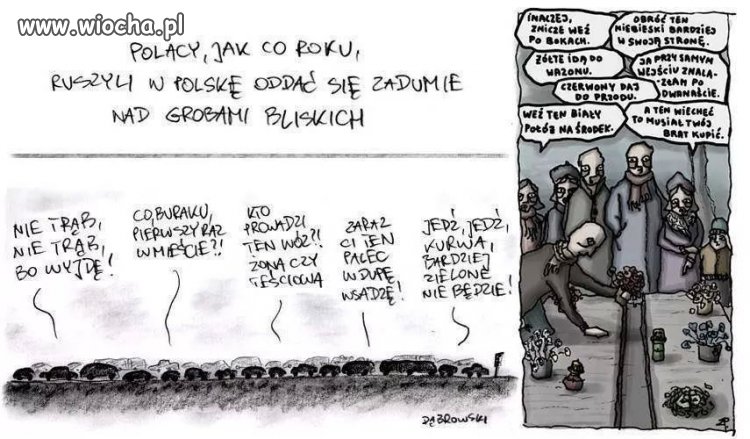 www.wiocha.pl
POLACY, JAK CO ROKU,
RUSZYLI W POLSKĘ ODDAĆ SIĘ ZADUMIE
NAD GROBAMI BLISKICH
NIE TRĄB,
NIE TRĄB,
BO WYJDĘ!
CO, BURAKU,
PIERWSZY RAZ
W MIEŚCIE?!
KTO
PROWADZI
TEN WÓZ?!
ŻONA CZY
TEŚCIOWA
ZARAZ
CI TEN
PALEC
W DUPĘ
WSADZĘ!
JEDŹ, JEDŹ,
KURWA,
BARDZIEJ
ZIELONE
NIE BĘDZIE!
DĄBROWSKI
INACZEJ,
ZNICZE WEŹ
PO BOKACH.
OBRÓĆ TEN
NIEBIESKI BARDZIEJ
W SWOJĄ STRONĘ.
ŻÓŁTE IDĄ DO
WAZONU.
JA PRZY SAMYM
WEJŚCIU ZNALA-
ZŁAM PO
DWANAŚCIE.
CZERWONY DAJ
DO PRZODU.
WEŹ TEN BIAŁY
POŁÓŻ NA ŚRODEK.
A TEN WIECHEĆ
TO MUSIAŁ TWÓJ
BRAT KUPIĆ.